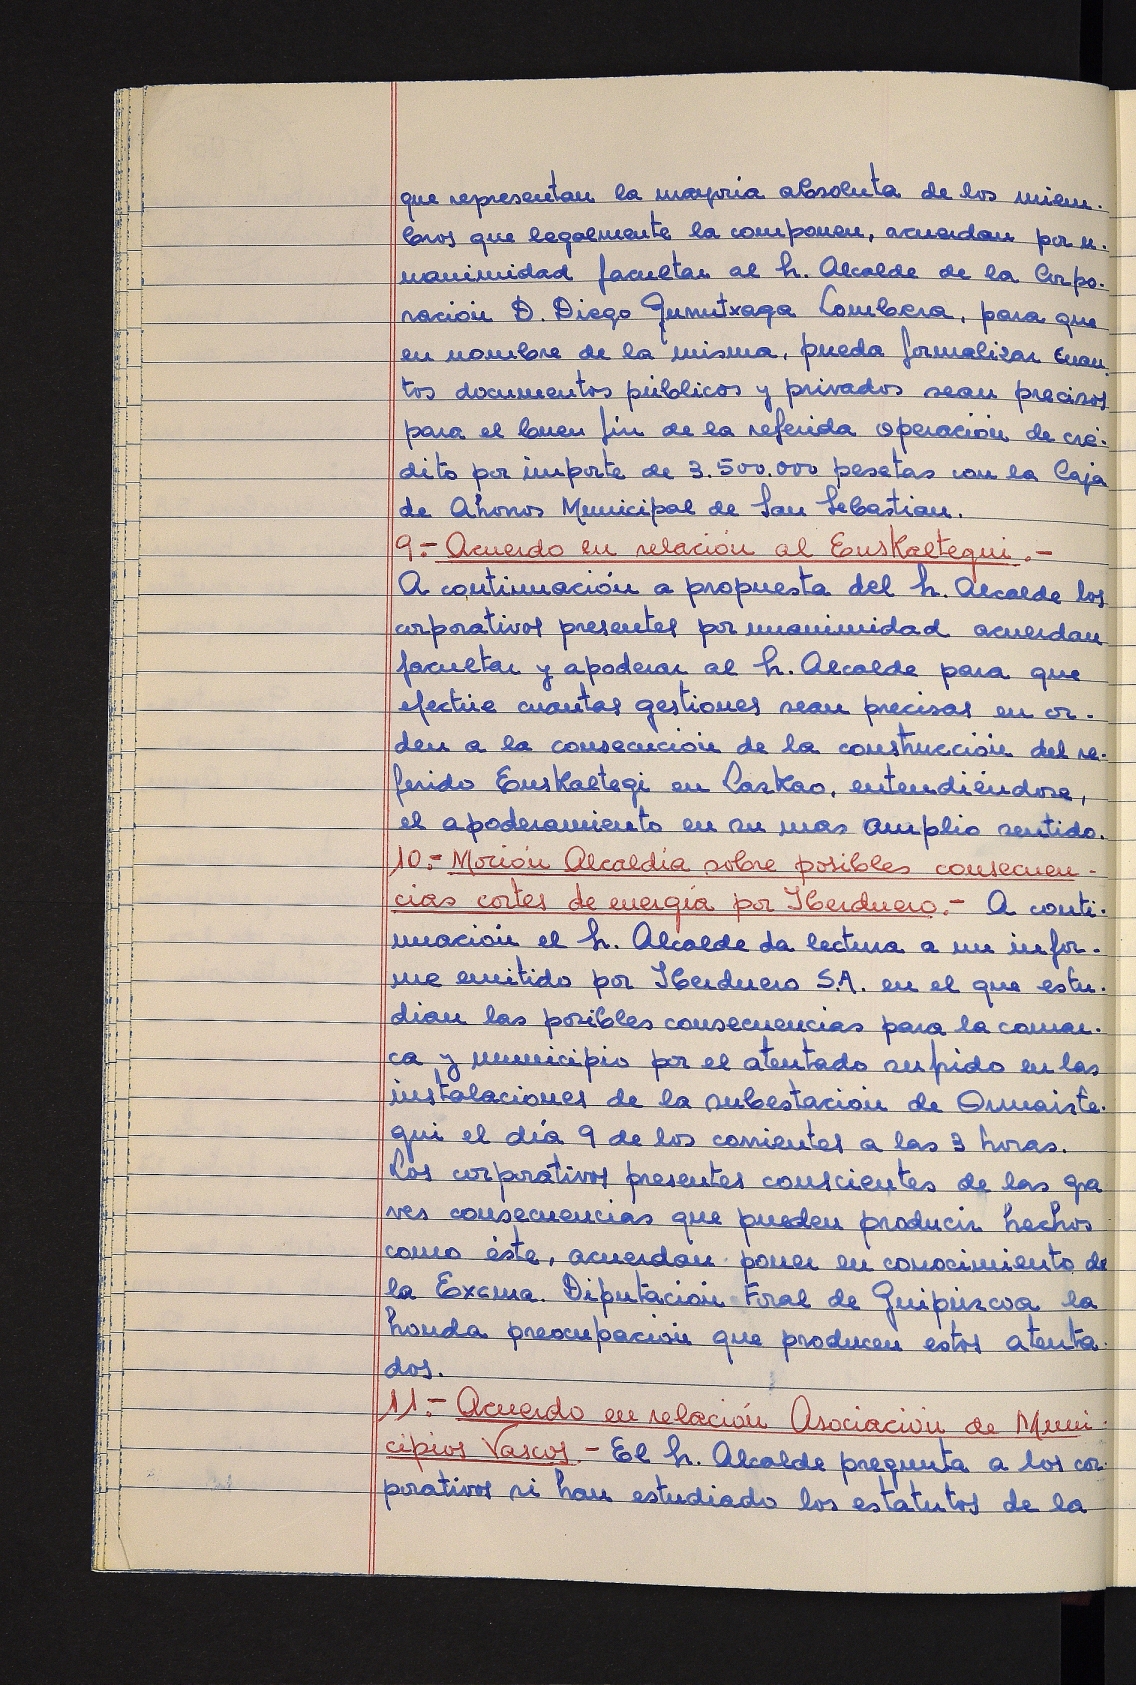 que representan la mayoria absoluta de los miem-
bros que legalmente la componen, acuerdan por u-
nanimidad facultar al Sr. Alcalde de la Corpo-
ración D. Diego Gurrutxaga Lombera, para que
en nombre de la misma, pueda formalizar cuan-
tos documentos públicos y privados sean precisos
para el buen fin de la referida operación de cré-
dito por importe de 3.500.000 pesetas con la Caja
de Ahorros Municipal de San Sebastian.
9.- Acuerdo en relación al Euskaltegui.-
A continuación a propuesta del Sr. Alcalde los
corporativos presentes por unanimidad acuerdan
facultar y apoderar al Sr. Alcalde para que
efectúe cuantas gestiones sean precisas en or-
den a la consecución de la construcción del re-
ferido Euskaltegi en Lazkao, entendiéndose,
el apoderamiento en su mas amplio sentido.
10.- Moción Alcaldía sobre posibles consecuen-
cias cortes de energía por Iberduero.- A conti-
nuación el Sr. Alcalde da lectura a un infor-
me emitido por Iberduero S.A. en el que estu-
dian las posibles consecuencias para la comar-
ca y municipio por el atentado sufrido en las
instalaciones de la subestación de Ormaizte-
gui el día 9 de los corrientes a las 3 horas.
Los corporativos presentes conscientes de las gra
ves consecuencias que pueden producir hechos
como éste, acuerdan poner en conocimiento de
la Excma. Diputación Foral de Guipúzcoa la
honda preocupación que producen estos atenta-
dos.
11.- Acuerdo en relación Asociación de Muni-
cipios Vascos.- El Sr. Alcalde pregunta a los cor-
porativos si han estudiado los estatutos de la